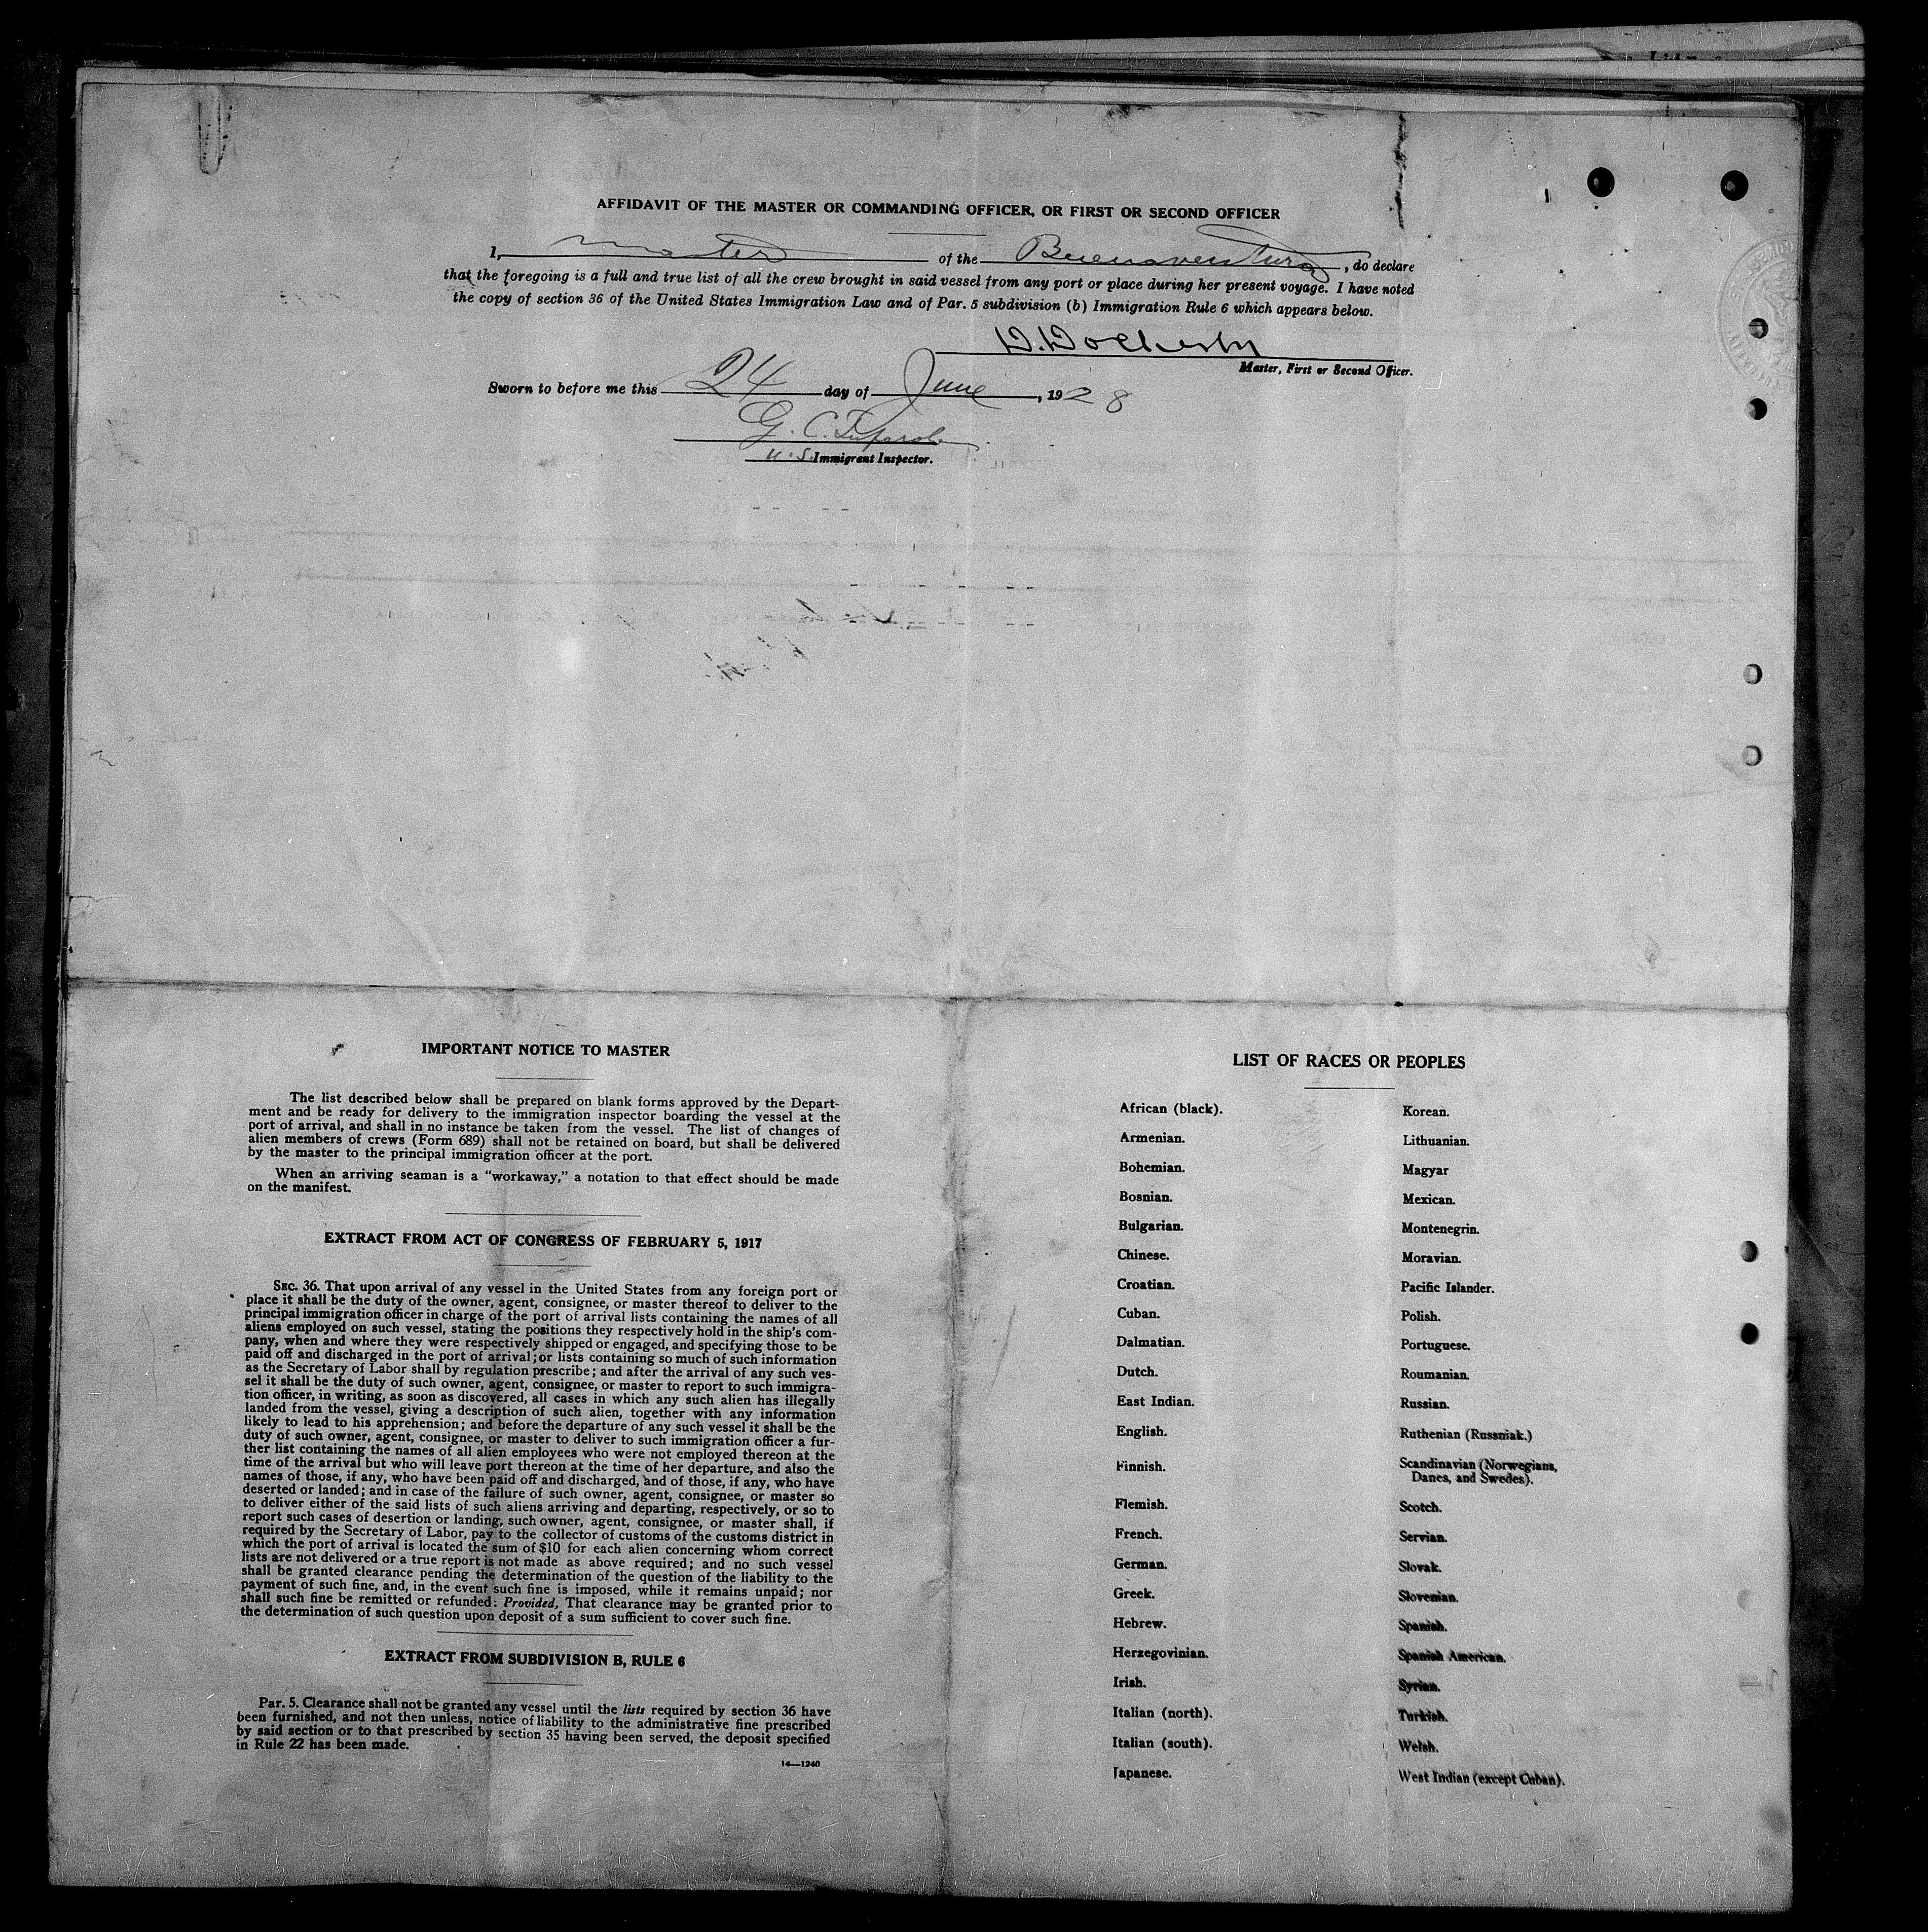 AFFIDAVIT OF THE MASTER OR COMMANDING OFFICER, OR FIRST OR SECOND OFFICER
I, master of the Buenaventura, do declare
that the foregoing is a full and true list of all the crew brought in said vessel from any port or place during her present voyage. I have noted
the copy of section 36 of the United States Immigration Law and of Par. 5 subdivision (b) Immigration Rule 6 which appears below.
Master, First or Second Officer.
Sworn to before me this 24 day of June, 1928
G. C.
U.S. Immigrant Inspector.
IMPORTANT NOTICE TO MASTER
The list described below shall be prepared on blank forms approved by the Depart-
ment and be ready for delivery to the immigration inspector boarding the vessel at the
port of arrival, and shall in no instance be taken from the vessel. The list of changes of
alien members of crews (Form 689) shall not be retained on board, but shall be delivered
by the master to the principal immigration officer at the port.
When an arriving seaman is a “workaway,” a notation to that effect should be made
on the manifest.
EXTRACT FROM ACT OF CONGRESS OF FEBRUARY 5, 1917
SEC. 36. That upon arrival of any vessel in the United States from any foreign port or
place it shall be the duty of the owner, agent, consignee, or master thereof to deliver to the
principal immigration officer in charge of the port of arrival lists containing the names of all
aliens employed on such vessel, stating the positions they respectively hold in the ship's com-
pany, when and where they were respectively shipped or engaged, and specifying those to be
paid off and discharged in the port of arrival; or lists containing so much of such information
as the Secretary of Labor shall by regulation prescribe; and after the arrival of any such ves-
sel it shall be the duty of such owner, agent, consignee, or master to report to such immigra-
tion officer, in writing, as soon as discovered, all cases in which any such alien has illegally
landed from the vessel, giving a description of such alien, together with any information
likely to lead to his apprehension; and before the departure of any such vessel it shall be the
duty of such owner, agent, consignee, or master to deliver to such immigration officer a fur-
ther list containing the names of all alien employees who were not employed thereon at the
time of the arrival but who will leave port thereon at the time of her departure, and also the
names of those, if any, who have been paid off and discharged, and of those, if any, who have
deserted or landed; and in case of the failure of such owner, agent, consignee, or master so
to deliver either of the said lists of such aliens arriving and departing, respectively, or so to
report such cases of desertion or landing, such owner, agent, consignee, or master shall, if
required by the Secretary of Labor, pay to the collector of customs of the customs district in
which the port of arrival is located the sum of $10 for each alien concerning whom correct
lists are not delivered or a true report is not made as above required; and no such vessel
shall be granted clearance pending the determination of the question of the liability to the
payment of such fine, and, in the event such fine is imposed, while it remains unpaid; nor
shall such fine be remitted or refunded: Provided, That clearance may be granted prior to
the determination of such question upon deposit of a sum sufficient to cover such fine.
EXTRACT FROM SUBDIVISION B, RULE 6
Par. 5. Clearance shall not be granted any vessel until the lists required by section 36 have
been furnished, and not then unless, notice of liability to the administrative fine prescribed
by said section or to that prescribed by section 35 having been served, the deposit specified
in Rule 22 has been made.
14—1240
LIST OF RACES OR PEOPLES
African (black).
Armenian.
Bohemian.
Bosnian.
Bulgarian.
Chinese.
Croatian.
Cuban.
Dalmatian.
Dutch.
East Indian.
English.
Finnish.
Flemish.
French.
German.
Greek.
Hebrew.
Herzegovinian.
Irish.
Italian (north).
Italian (south).
Japanese.
Korean.
Lithuanian.
Magyar
Mexican.
Montenegrin.
Moravian.
Pacific Islander.
Polish.
Portuguese.
Roumanian.
Russian.
Ruthenian (Russniak.)
Scandinavian (Norwegians,
Danes, and Swedes).
Scotch.
Servian.
Slovak.
Slovenian.
Spanish.
Spanish American.
Syrian.
Turkish.
Welsh.
West Indian (except Cuban).